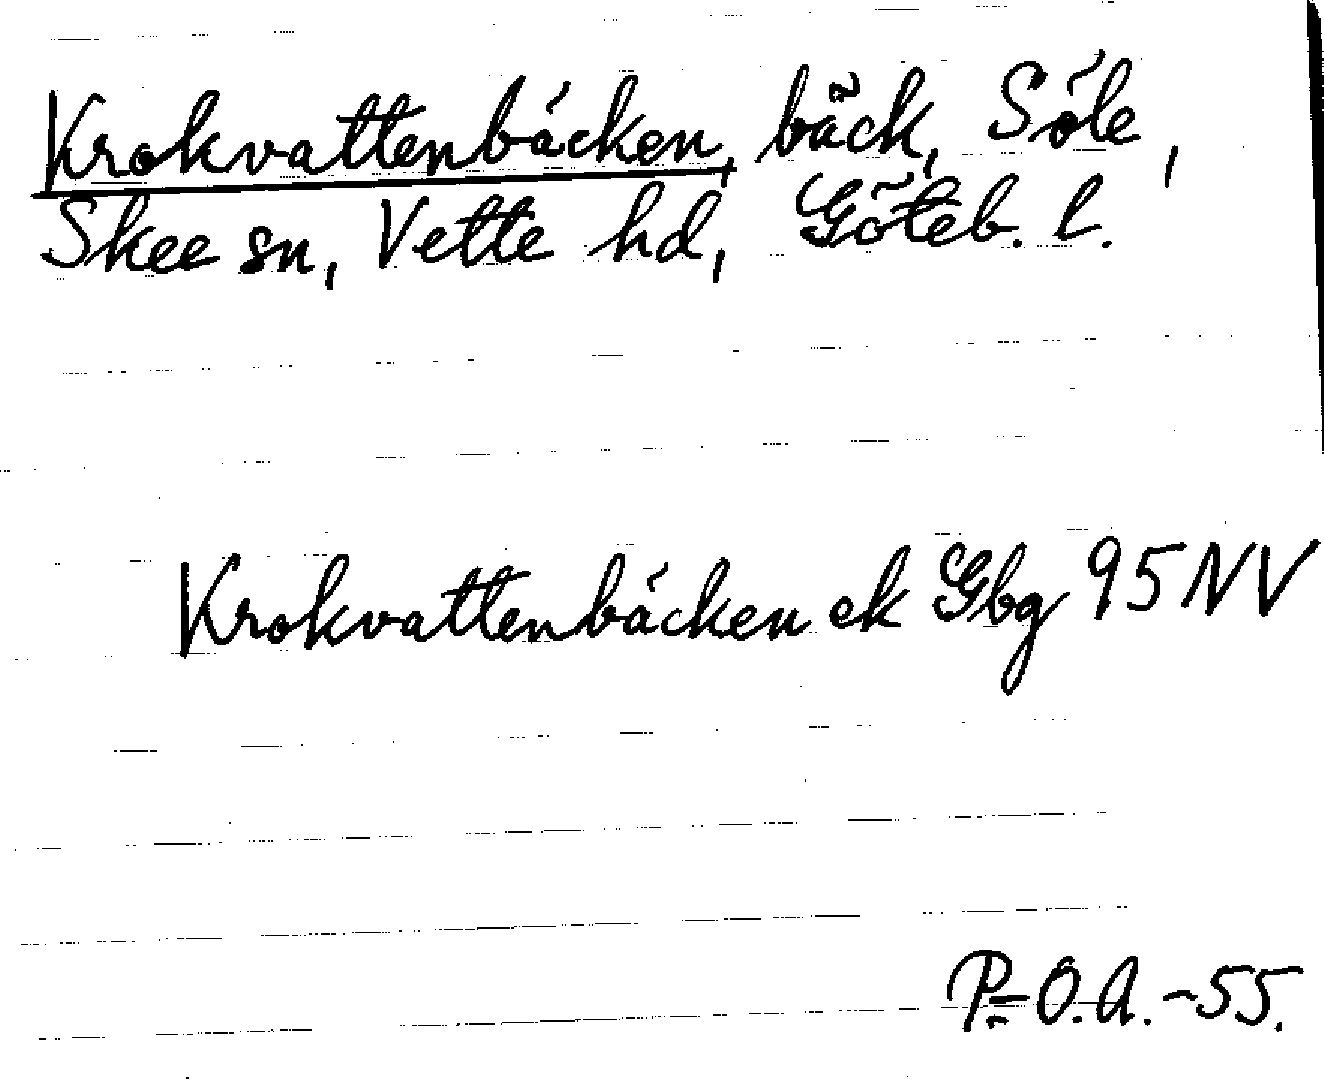 Krokvattenbäcken, bäck, Söle,
Skee sn, Vette hd, Göteb. l.
Krokvattenbäcken ek Gbg 95 NV
P-O.A. -55.